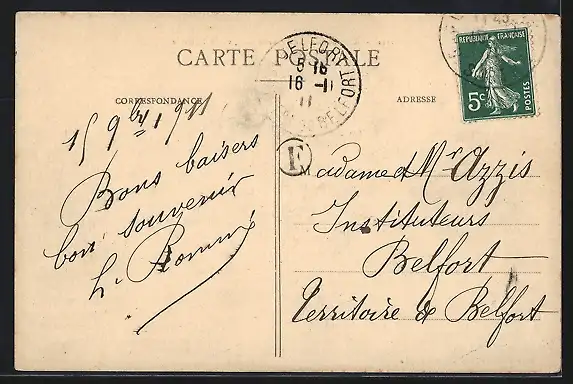 CARTE POSTALE
CORRESPONDANCE
ADRESSE
REPUBLIQUE FRANÇAISE
POSTES
5c
BELFORT
5-16
16-11
11
BELFORT
15 9bre 1911
Bons baisers
bon souvenir
F
Madame et Mr Azzis
Instituteurs
Belfort
Territoire de Belfort